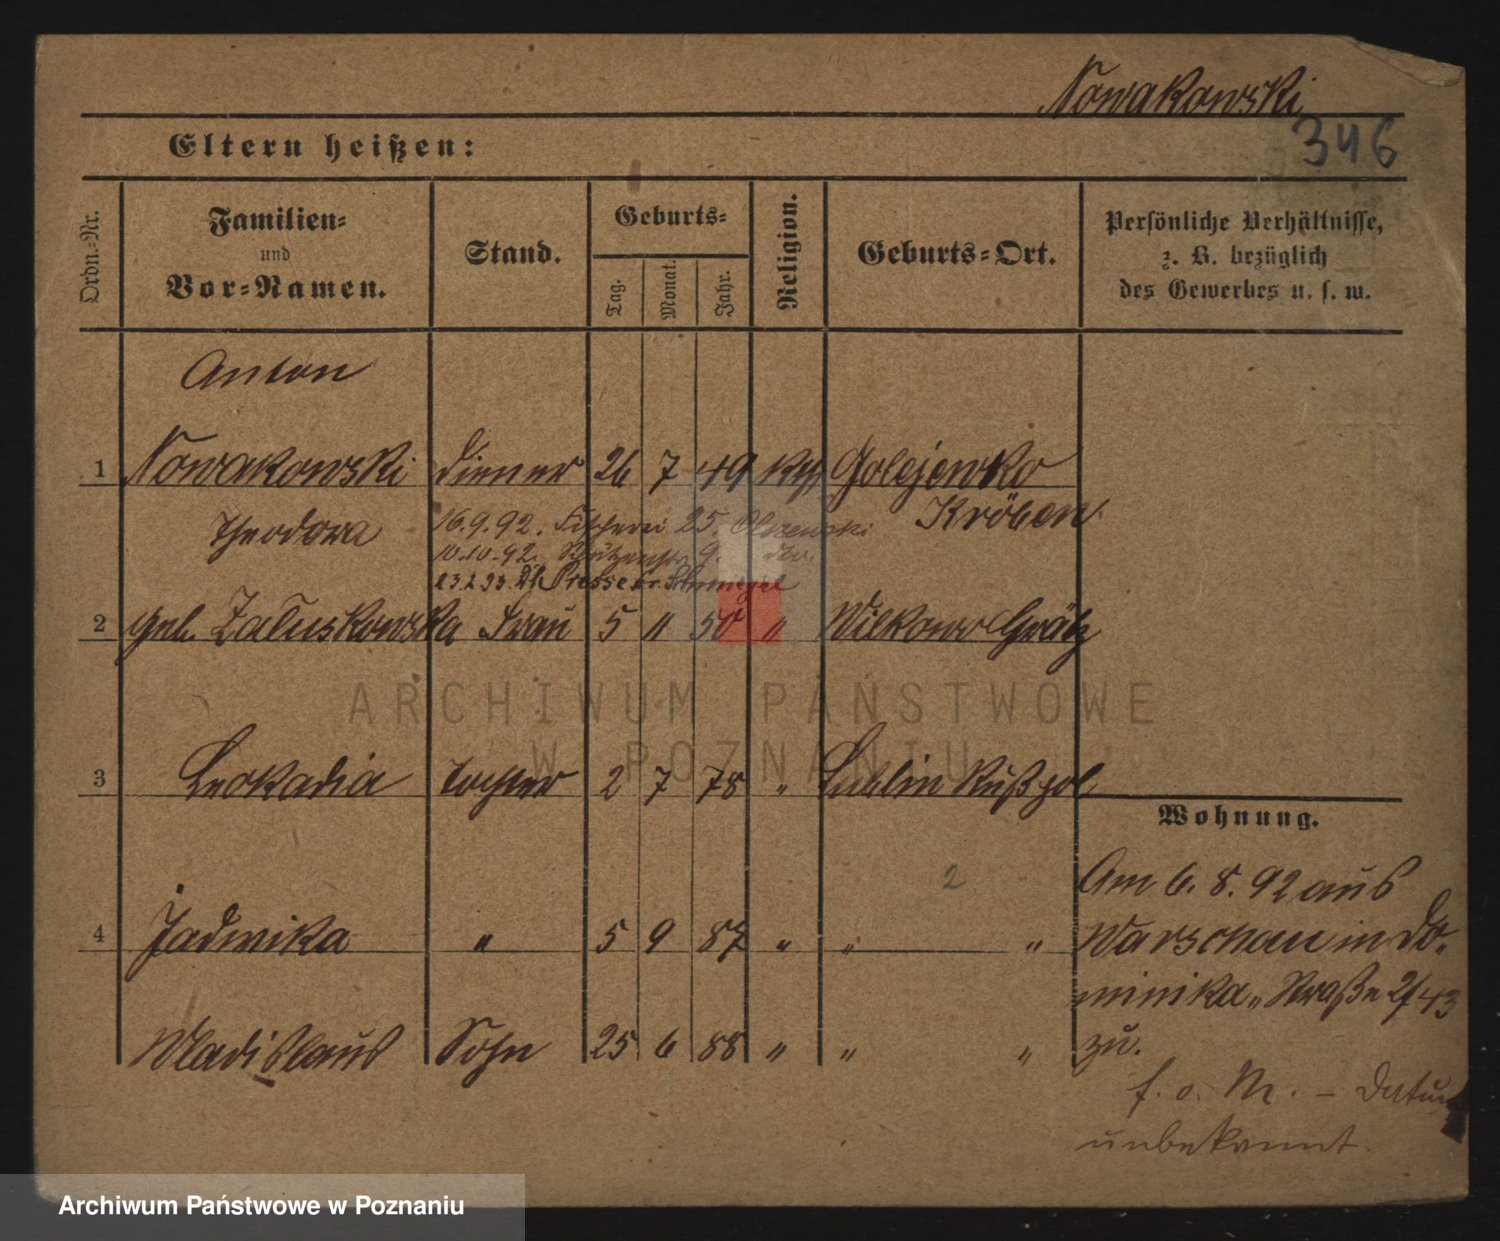 Nowakowski
346
Eltern heißen:
Ordn.-Nr.
Familien-
und
Vor-Namen.
Stand.
Geburts-
Tag.
Monat.
Jahr.
Religion.
Geburts-Ort.
Persönliche Verhältnisse,
z. B. bezüglich
des Gewerbes u. s. w.
Anton
1 Nowakowski Diener 26 7 49 kth Golejewko
Kröben
Theodora 16.9.92. Fischerei 25. Olszewski
10.10.92. Schützenstr. 9. dto.
23.2.93. Schmiegel
2 geb. Zaluskowska Frau 5 11 50 " Wilkowo Grätz
ARCHIWUM PAŃSTWOWE
W POZNANIU
3 Leokadia Tochter 2 7 78 " Lublin Rußpol
Wohnung.
2
4 Jadwika " 5 9 87 " " "
Wladislaus Sohn 25 6 88 " " "
Am 6. 8. 92 aus
Warschau in Do-
minika-Straße 2/43
zu.
f. o. M. - Datum
unbekannt.
Archiwum Państwowe w Poznaniu